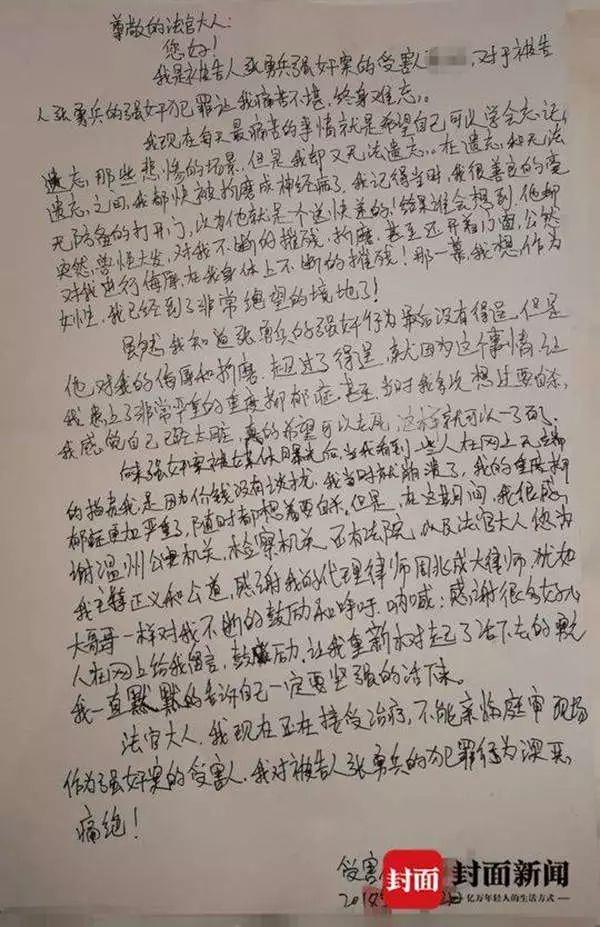 尊敬的法官大人:
您好!
我是被告人张勇兵强奸案的受害人 ,对于被告
人张勇兵的强奸犯罪让我痛苦不堪,终身难忘。
我现在每天最痛苦的事情就是希望自己可以学会忘记,
遗忘,那些悲惨的场景,但是我却又无法遗忘。在遗忘,和无法
遗忘,之间,我都快被折磨成神经病了。我记得当时,我很善良的毫
无防备的打开门,以为他就是个送快递的!结果谁会想到,他却
突然,兽性大发,对我不断的摧残,折磨,甚至还开着门面,公然
对我进行侮辱,在我身体上不断的摧残!那一幕,我想,作为
女性,我已经到了非常绝望的境地了!
虽然,我知道张勇兵的强奸行为最后没有得逞,但是
他对我的侮辱和折磨,超过了得逞,就因为这个事情,让
我患上了非常严重的重度抑郁症,甚至,当时我多次想过要自杀,
我感觉自己已经太脏,真的希望可以去死,这样就可以一了百了。
强奸案被媒体曝光后,当我看到一些人在网上
的指责我是因为价钱没有谈拢,我当时就崩溃了,我的重度抑
郁症更加严重了,随时都想着要自杀。但是,在这期间,我很感
谢温州公安机关,检察机关,还有法院,以及法官大人您为
我主持正义和公道,感谢我的代理律师周兆成大律师,犹如
大哥哥一样对我不断的鼓励和呼吁,呐喊;感谢很多好心
人在网上给我留言,鼓励,让我重新对起了活下去的勇
我一直默默的告诉自己一定要坚强的活下来。
法官大人,我现在正在接受治疗,不能亲临庭审现场
作为强奸案的受害人,我对被告人张勇兵的犯罪行为深恶,
痛绝!
受害
201
封面 封面新闻
亿万年轻人的生活方式